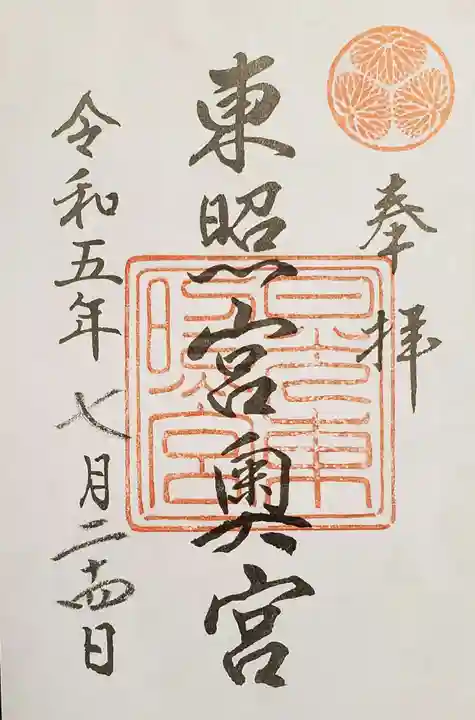 奉拝
東照宮奥宮
日光東照宮
令和五年七月二十四日